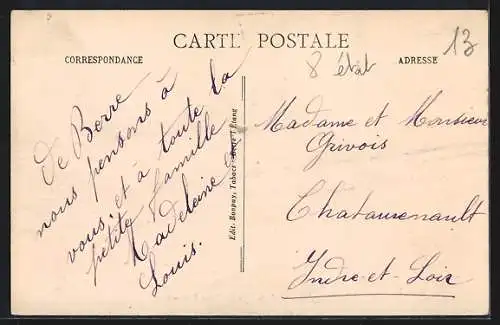 CARTE POSTALE
CORRESPONDANCE
ADRESSE
13
8 état
De Berre
nous pensons à
vous et à toute la
petite famille
Madeleine &
Louis.
Edit. Bonpuy, Tabacs - Berre l'Etang
Madame et Monsieur
Grivois
Chataurenault
Indre-et-Loir